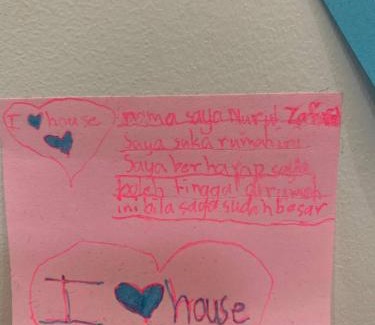 I house
nama saya Nurul
Saya suka rumah ini
Saya berharap saya
boleh tinggal di rumah
ini bila saya sudah besar
I house